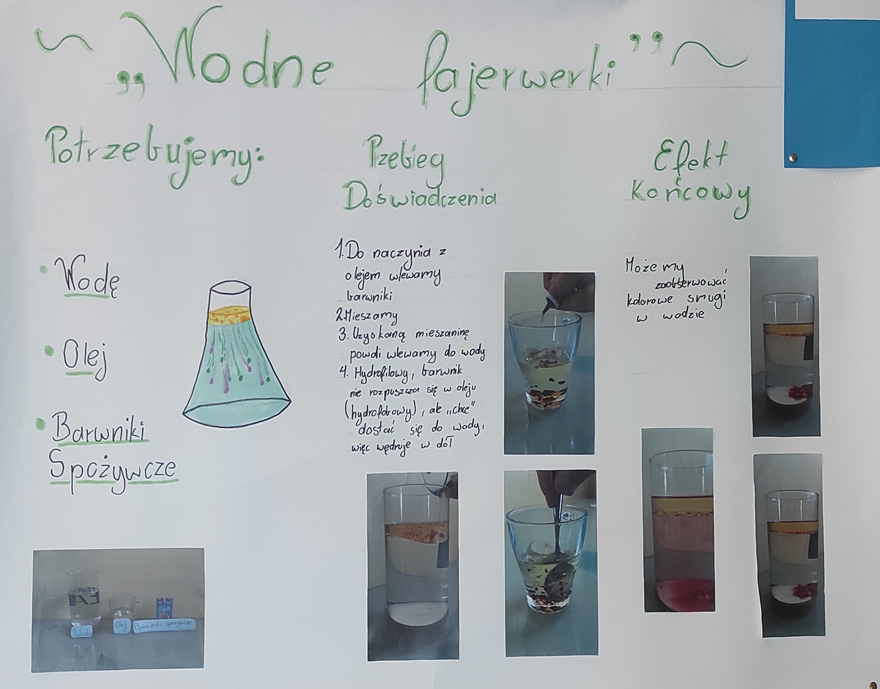 „Wodne fajerwerki”
Potrzebujemy:
Wodę
Olej
Barwniki
Spożywcze
Pzebieg
Doświadczenia
1. Do naczynia z
olejem wlewamy
barwniki
2. Mieszamy
3. Uzyskaną mieszaninę
powoli wlewamy do wody
4. Hydrofilowy, barwnik
nie rozpuszcza się w oleju
(hydrofobowy), ale „chce”
dostać się do wody,
więc wędruje w dół
Efekt
Końcowy
Możemy
zaobserwować
kolorowe smugi
w wodzie
Olej